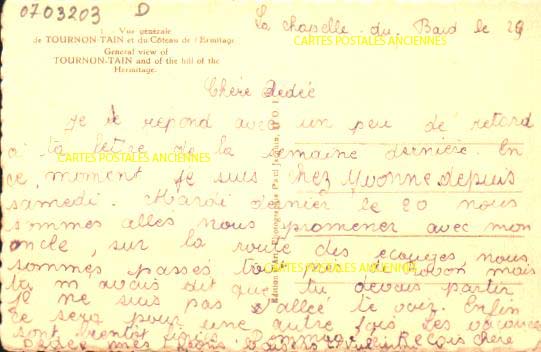 0703203 D
La chapelle du Bard le 29
1 - Vue générale
de TOURNON-TAIN et du Côteau de l'Ermitage
General view of
TOURNON-TAIN and of the hill of the
Hermitage.
CARTES POSTALES ANCIENNES
Chère Dédée
Je te repond avec un peu de retard
a ta lettre de la semaine dernière. En
CARTES POSTALES ANCIENNES
ce moment je suis chez Yvonne depuis
samedi. Mardi dernier le 20 nous
sommes allés nous promener avec mon
oncle, sur la route des nous
sommes passés mais
CARTES POSTALES ANCIENNES
tu m avais dit que tu devais partir
Je ne suis pas allée te voir. Enfin
ce sera pour une autre fois Les vacances
sont bientôt
chère
Edition d'Art, Photographie Paul